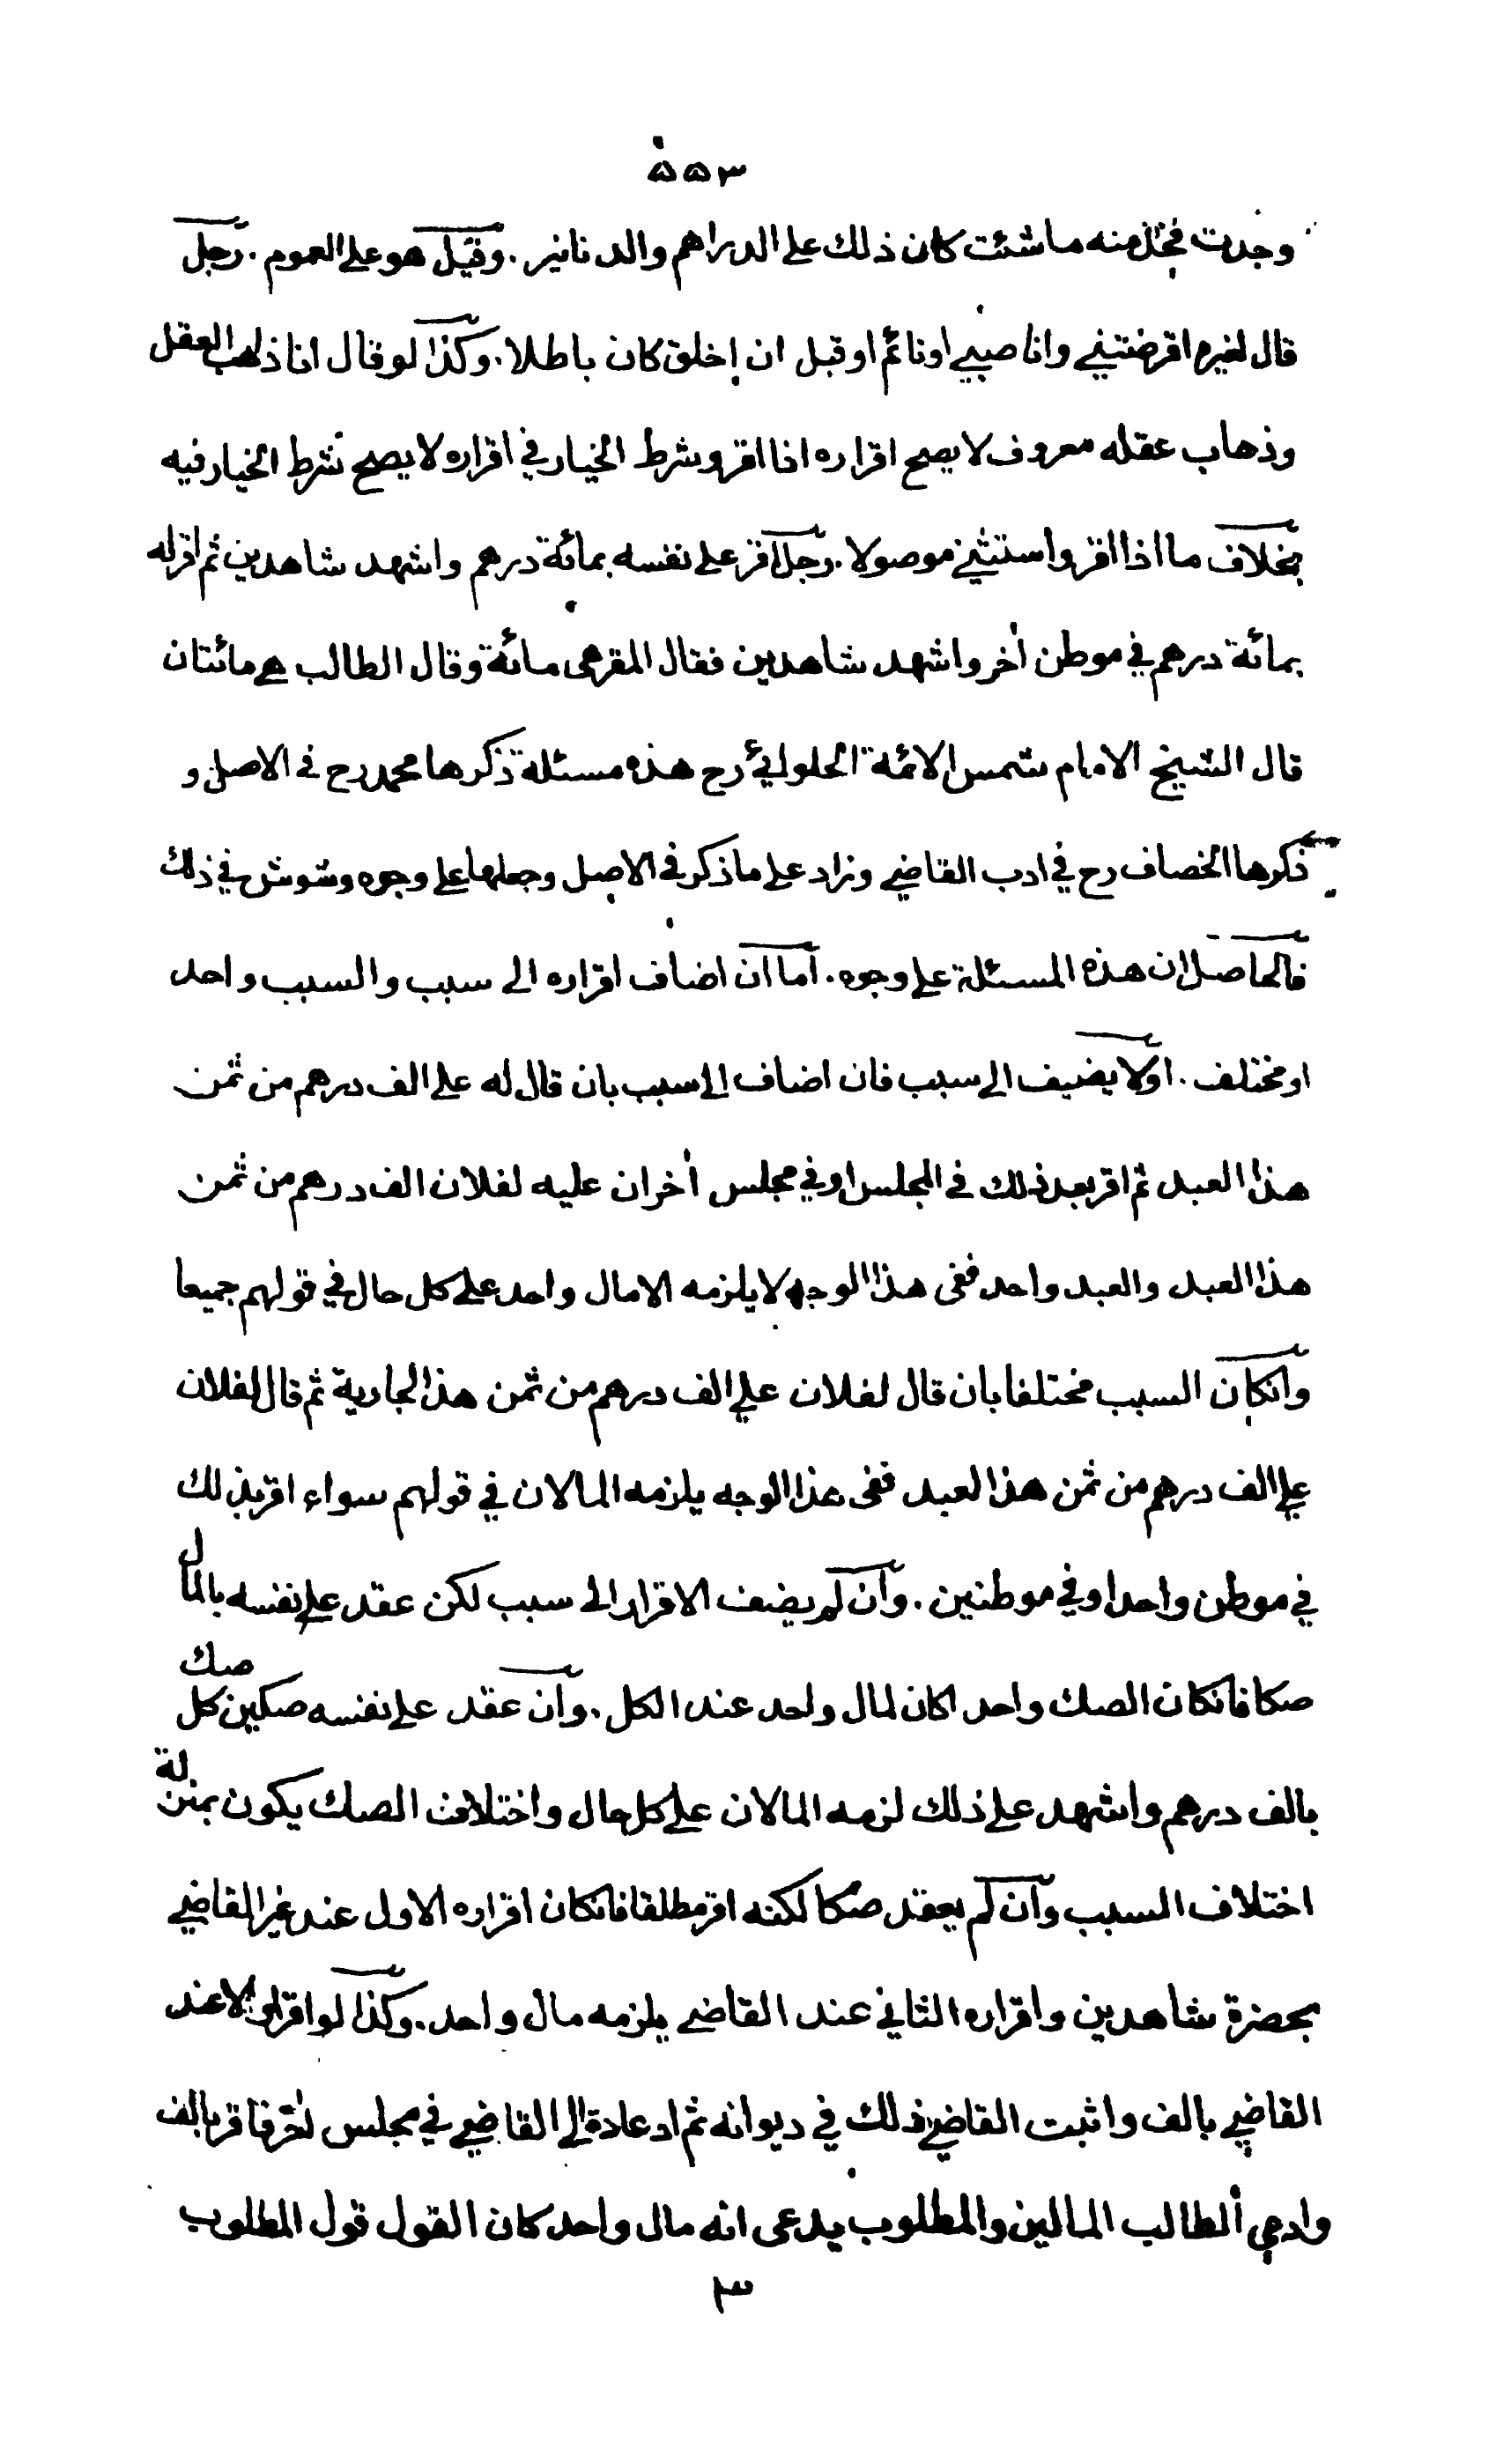 ٥٥٣
وجدت فخذ منه ما شئت كان ذلك على الدراهم والدنانير . وقيل هو على العموم . رجل
قال لغيره اقرضتني وانا صبي او نائم او قبل ان اخلق كان باطلا . وكذا لو قال انا ذاهب العقل
وذهاب عقله معروف لا يصح اقراره اذا اقر وشرط الخيار في اقراره لا يصح شرط الخيار فيه
بخلاف ما اذا اقر واستثنى موصولا . رجل اقر على نفسه بمائة درهم واشهد شاهدين ثم اقر له
بمائة درهم في موطن أخر واشهد شاهدين فقال المقر هى مائة وقال الطالب هي مائتان
قال الشيخ الامام شمس الائمة الحلوائي رح هذه مسئلة ذكرها محمد رح في الاصل و
ذكرها الخصاف رح في ادب القاضي وزاد على ما ذكر في الاصل وجعلها على وجوه وشوش في ذلك
فالحاصل ان هذه المسئلة على وجوه . اما ان اضاف اقراره الى سبب والسبب واحد
او مختلف . اولا يضيف الى سبب فان اضاف الى سبب بان قال له علي الف درهم من ثمن
هذا العبد ثم اقر بعد ذلك في المجلس او في مجلس أخر ان عليه لفلان الف درهم من ثمن
هذا العبد والعبد واحد ففى هذا الوجه لا يلزمه الا مال واحد على كل حال في قولهم جميعا
وانكان السبب مختلفا بان قال لفلان علي الف درهم من ثمن هذا الجارية ثم قال لفلان
علي الف درهم من ثمن هذا العبد ففى هذا الوجه يلزمه المالان في قولهم سواء اقر بذلك
في موطن واحد او في موطنين . وان لم يضف الاقرار الى سبب لكن عقد على نفسه بالمال
صكا فانكان الصك واحدا كان المال واحد عند الكل . وان عقد على نفسه صكين كل صك
بالف درهم واشهد على ذلك لزمه المالان على كل حال واختلاف الصك يكون بمنزلة
اختلاف السبب وان لم يعقد صكا لكنه اقر مطلقا فانكان اقراره الاول عند غير القاضي
بحضرة شاهدين واقراره الثاني عند القاضي يلزمه مال واحد . وكذا لو اقر اولا عند
القاضي بالف واثبت القاضي ذلك في ديوانه ثم ادعاه الى القاضي في مجلس أخر فاقر بالف
وادعي ألطالب المالين والمطلوب يدعى انه مال واحد كان القول قول المطلوب